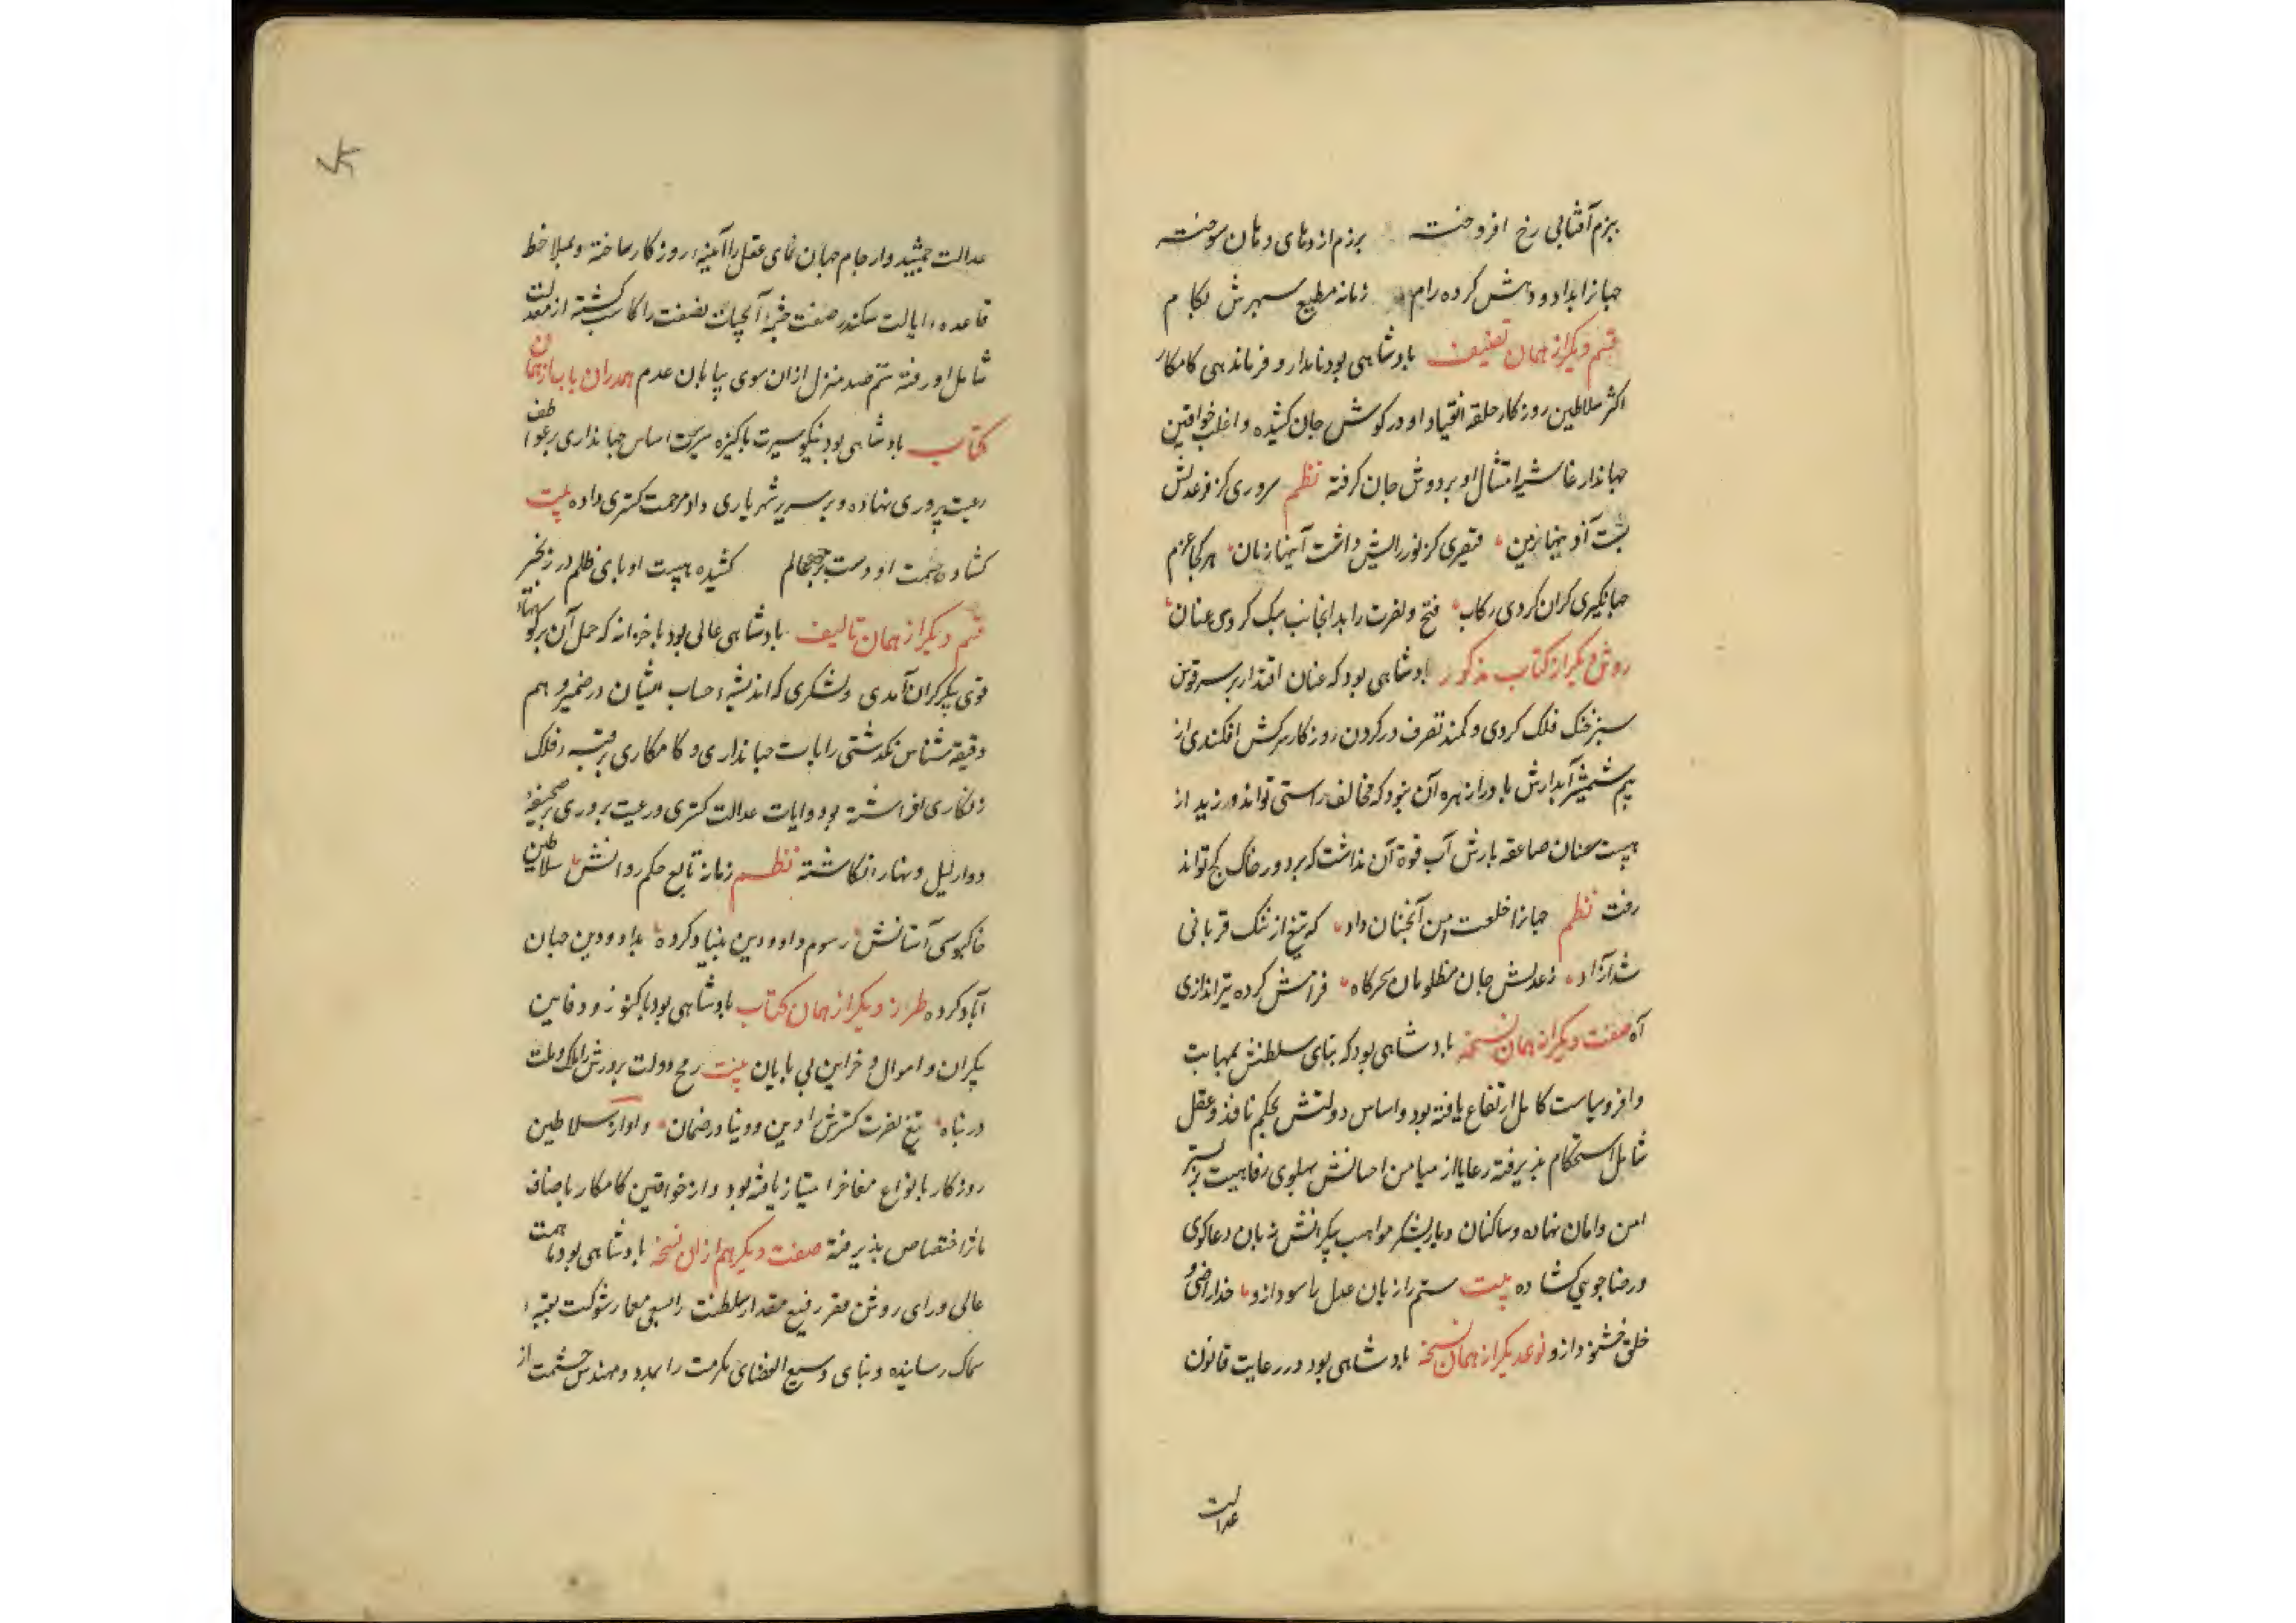 ببزم آفتابی رخ افروخته برزم اژدهای دهان سوخته
جهانرا بداد و دهش کرده رام زمانه مطیع سپهرش بکام
قسم دیگر از همان تصنیف بادشاهی بود نامدار و فرماندهی کامکار
اکثر سلاطین روزکار حلقه انقیاد او در کوش جان کشیده و اغلب خواقین
جهاندار غاشیه امتثال او بر دوش جان کرفته نظم سروری کز فر عدلش
پشت آذ زمین قیصری کز نور رایش داشت زمان هر کجا عزم
جهانکیری کران کردی رکاب فتح و نصرت را بدانجانب سبک کردی عنان
روش دیکر از کتاب مذکور بادشاهی بود که عنان اقتدار بر سر توسن
سبز خنک فلک کردی و کمند تصرف در کردن روزکار سرکش افکندی از
بیم شمشیر آبدارش باد را زهره آن نبود که مخالف راستی تواند ورزید از
هیبت سنان صاعقه بارش آب قوة آن نداشت که بر دور خاک کج تواند
رفت نظم جهانرا خلعت امن آنچنان داد که تیغ از ننک قربانی
شد آزاد ز عدلش جان مظلومان سحرکاه فرامش کرده تیراندازی
آه صفت دیکر از همان نسخه بادشاهی بود که بنای سلطنتش بمهابت
وافر و سیاست کامل ارتفاع یافته بود و اساس دولتش بحکم نافذ و عقل
شامل استحکام پذیرفته رعایا از میامن احسانش پهلوی رفاهیت بر بستر
امن و امان نهاده و ساکنان دیار بشکر مواهب بیکرانش زبان دعاکوی
و رضاجویی کشاده بیت ستم را زیان عدل را سود ازو خدا راضی و
خلق خشنود ازو نوعدیکر از همان نسخه بادشاهی بود در رعایت قانون
عدالت
عدالت جمشیدوار جام جهان نمای عقل را آیینه روزکار ساخته و بملاحظ
قاعده ایالت سکندر صفت چشمه آبحیات نصفت را کاسب کشته از معدلت
شامل او رفته ستم صد منزل ازان سوی بیابان عدم همدران باب از همان
کتاب بادشاهی بود نیکو سیرت پاکیزه سریرت اساس جهانداری بر عواطف
رعیت پروری نهاده و بر سریر شهریاری داد مرحمت کستری داده بیت
کشاده همت او دست بر عالم کشیده هیبت او پای ظلم در زنجیر
قسم دیکر از همان تالیف بادشاهی عالی بود با خزانه که حمل آن بر کوههای
قوی پیکر کران آمدی و لشکری که اندیشه حساب ایشان در ضمیر وهم
دقیقه شناس نکذشتی رایات جهانداری و کامکاری بر قبه فلک
زنکاری افراشته بود و ایات عدالت کستری و رعیت پروری بر صحیفه
دوار لیل و نهار انکاشته نظم زمانه تابع حکم روانش سلاطین
خاکبوسی آستانش رسوم داد و دین بنیاد کرده بداد و دین جهان
آباد کرده طرز دیکر از همان کتاب بادشاهی بود با کنوز و دفاین
بیکران و اموال و خزاین بی پایان بیت رمح دولت پرورش را ملک و ملت
در پناه تیغ نصرت کسترش را دین و دنیا در ضمان و از سلاطین
روزکار بانواع مفاخر امتیاز یافته بود و از خواقین کامکار باصناف
ماثر اختصاص پذیرفته صفت دیکر هم ازان نسخه بادشاهی بود با همت
عالی و رای روشن مقر رفیع مقدار سلطنت را بسعی معمار شوکت بقبه
سماک رسانیده و بنای وسیع الفضای مکرمت را بمدد مهندس حشمت از